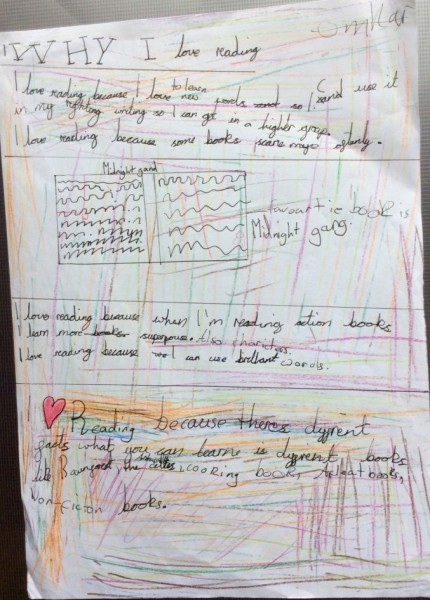 Omkar
WHY I love reading
I love reading because I love to learn new words so I can use it
in my righting writing so I can get in a higher group.
I love reading because some books scare
Midnight gand
favourtie book is
Midnight gang.
I love reading because when I'm reading action books
I learn more Also charictors.
I love reading because I can use brilliant words.
Reading because theres dyfrent
what you can learne is dyfrent books
like the books,
Non-ficion books.